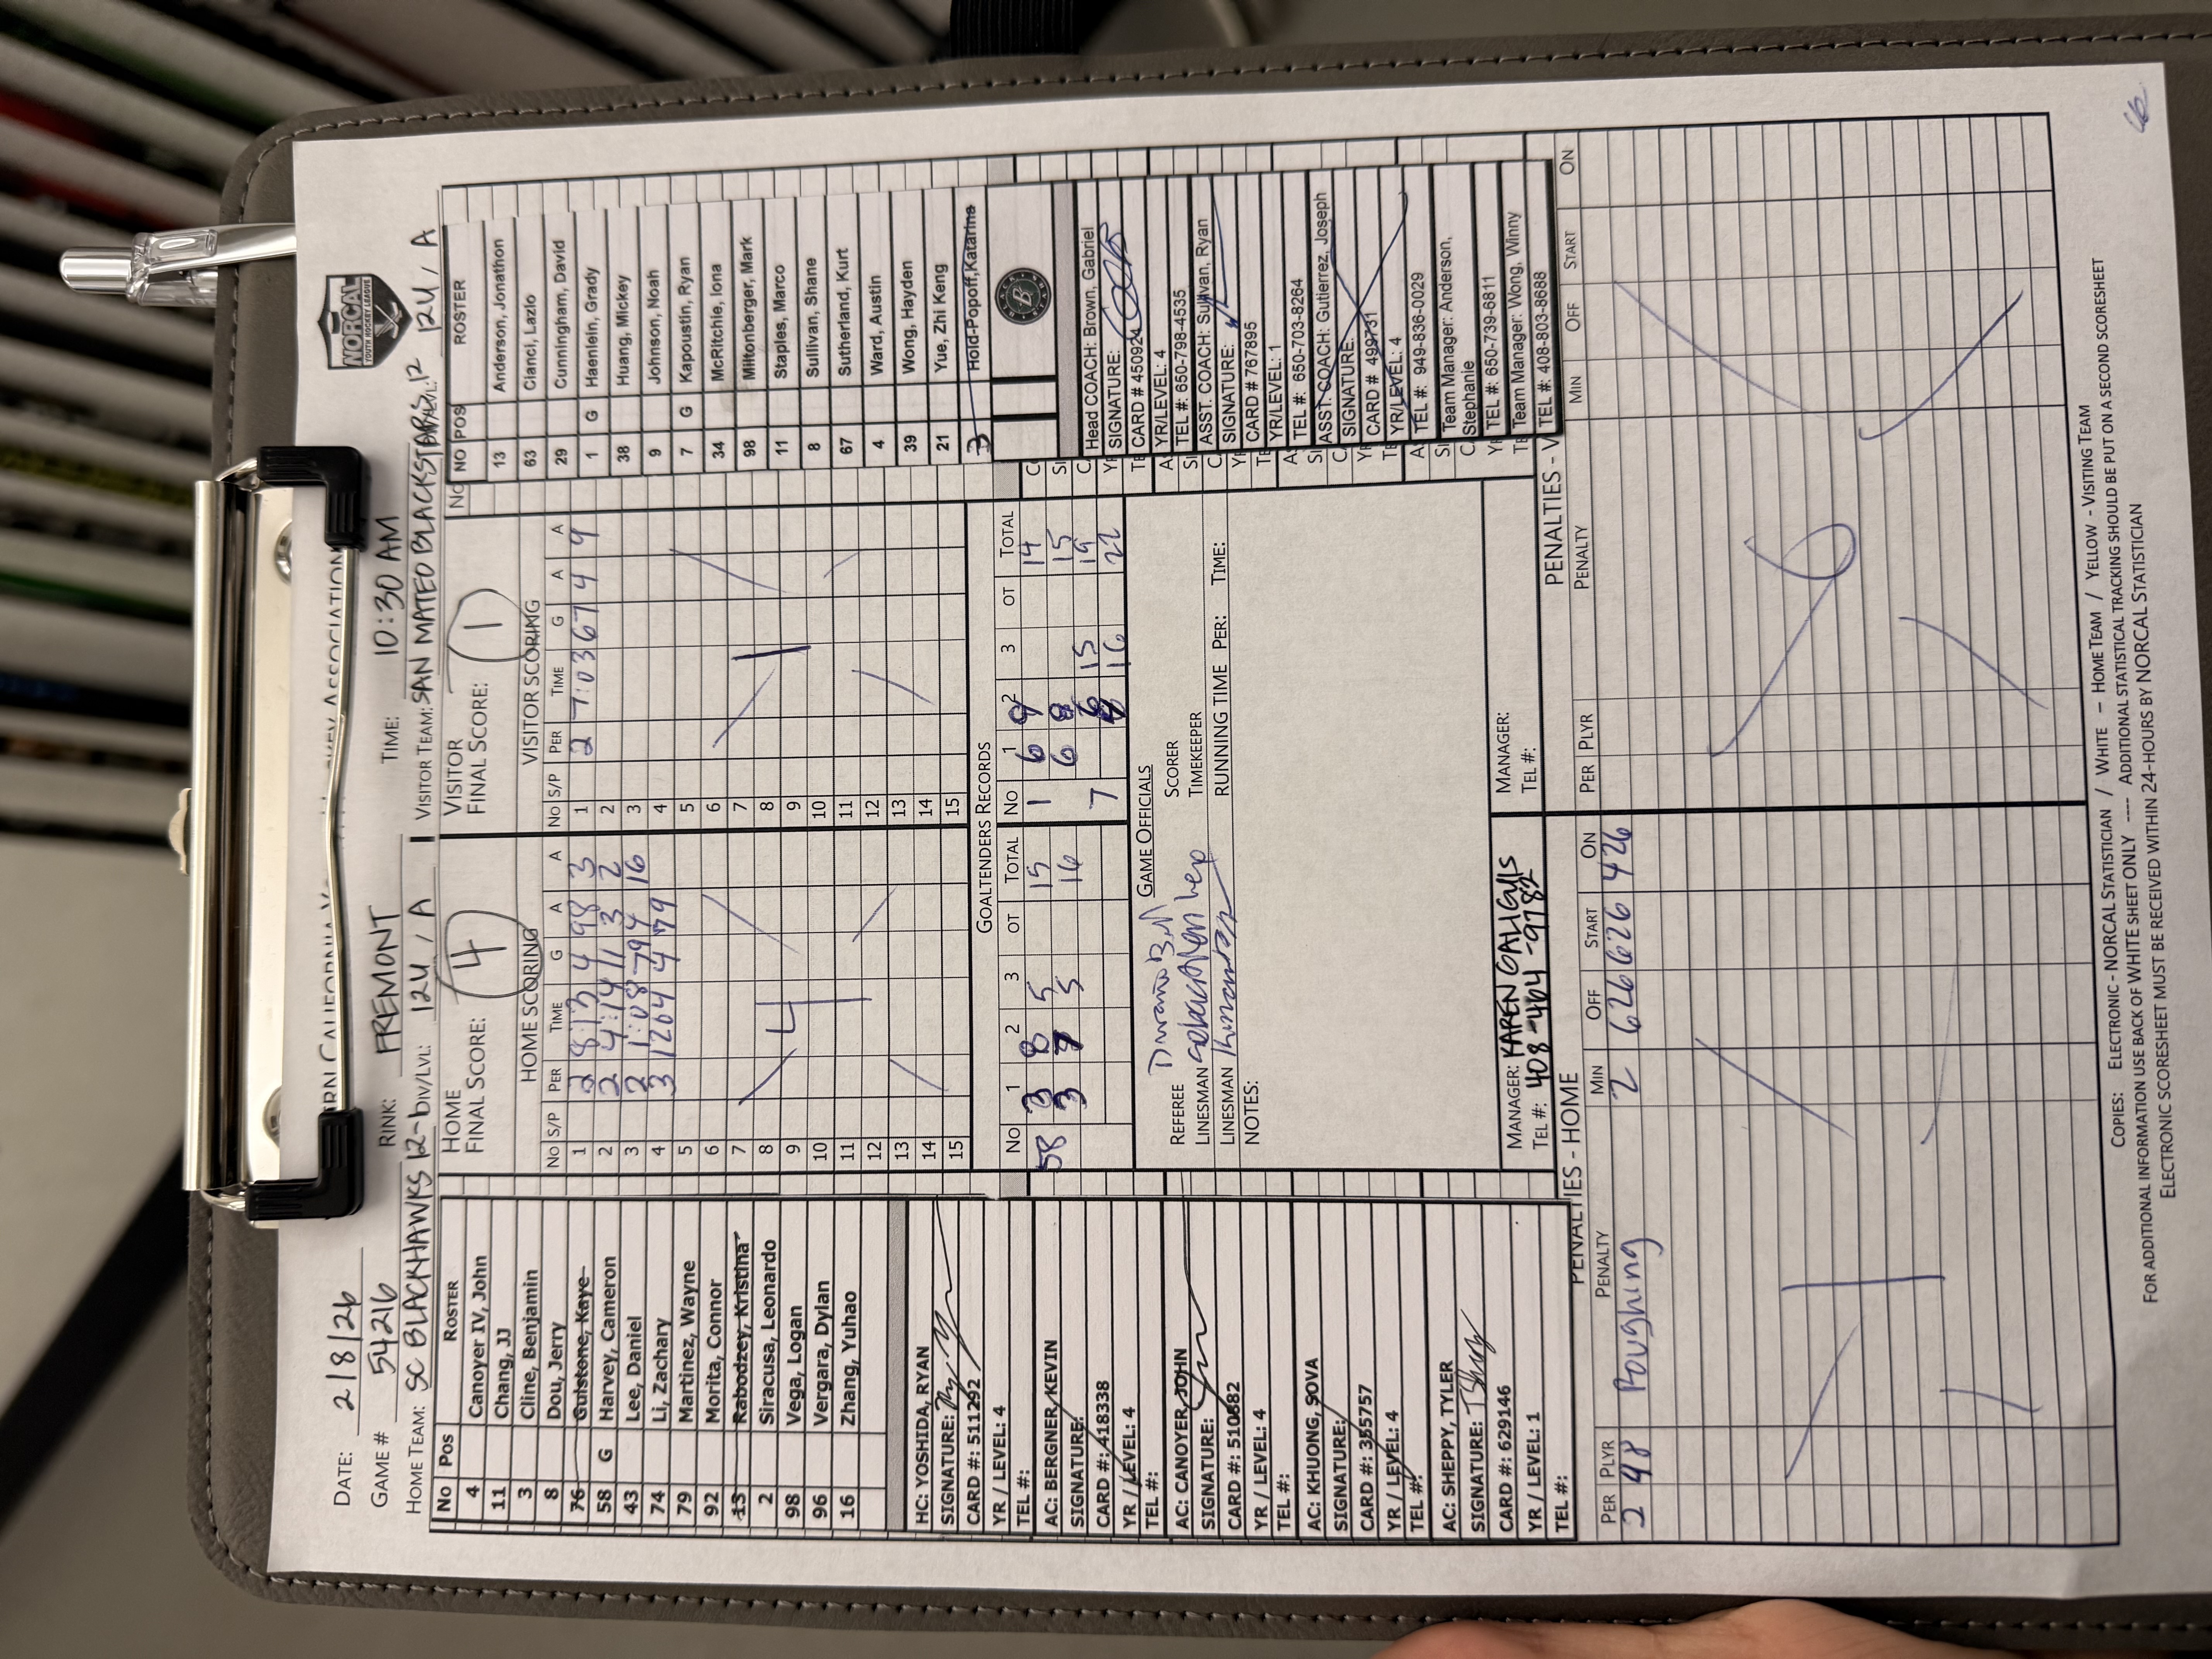 RN CALIFORNIA Y
HOCKEY ASSOCIATION
NORCAL
YOUTH HOCKEY LEAGUE
DATE: 2/8/26
RINK: FREMONT
TIME: 10:30 AM
GAME # 54216
HOME TEAM: SC BLACKHAWKS 12- DIV/LVL: 12U / A
VISITOR TEAM: SAN MATEO BLACKSTARS 12 12U / A
NO POS ROSTER
4 Canoyer IV, John
11 Chang, JJ
3 Cline, Benjamin
8 Dou, Jerry
76 Gulstone, Kaye
58 G Harvey, Cameron
43 Lee, Daniel
74 Li, Zachary
79 Martinez, Wayne
92 Morita, Connor
13 Rabodzey, Kristina
2 Siracusa, Leonardo
98 Vega, Logan
96 Vergara, Dylan
16 Zhang, Yuhao
HC: YOSHIDA, RYAN
SIGNATURE:
CARD #: 511292
YR / LEVEL: 4
TEL #:
AC: BERGNER, KEVIN
SIGNATURE:
CARD #: 418338
YR / LEVEL: 4
TEL #:
AC: CANOYER, JOHN
SIGNATURE:
CARD #: 510682
YR / LEVEL: 4
TEL #:
AC: KHUONG, SOVA
SIGNATURE:
CARD #: 355757
YR / LEVEL: 4
TEL #:
AC: SHEPPY, TYLER
SIGNATURE:
CARD #: 629146
YR / LEVEL: 1
TEL #:
HOME
FINAL SCORE: 4
HOME SCORING
NO S/P PER TIME G A A
1 2 8:13 4 98 3
2 2 4:14 11 3 2
3 2 1:08 79 4 16
4 3 1204 4 79
5
6
7
8
9
10
11
12
13
14
15
4
VISITOR
FINAL SCORE: 1
VISITOR SCORING
NO S/P PER TIME G A A
1 2 7:03 67 4 9
2
3
4
5
6
7
8
9
10
11
12
13
14
15
1
GOALTENDERS RECORDS
NO 1 2 3 OT TOTAL
58 3 8 5 15
3 5 16
NO 1 2 3 OT TOTAL
1 6 14
6 8 15
7 15 19
16 22
GAME OFFICIALS
REFEREE
LINESMAN
LINESMAN
SCORER
TIMEKEEPER
RUNNING TIME PER: TIME:
NOTES:
MANAGER: KAREN GALI
TEL #: 408-464-9782
MANAGER:
TEL #:
NO POS ROSTER
13 Anderson, Jonathon
63 Cianci, Lazlo
29 Cunningham, David
1 G Haenlein, Grady
38 Huang, Mickey
9 Johnson, Noah
7 G Kapoustin, Ryan
34 McRitchie, Iona
98 Miltonberger, Mark
11 Staples, Marco
8 Sullivan, Shane
67 Sutherland, Kurt
4 Ward, Austin
39 Wong, Hayden
21 Yue, Zhi Keng
3 Hold-Popoff, Katarina
B
Head COACH: Brown, Gabriel
SIGNATURE:
CARD # 450924
YR/LEVEL: 4
TEL #: 650-798-4535
ASST. COACH: Sullivan, Ryan
SIGNATURE:
CARD # 767895
YR/LEVEL: 1
TEL #: 650-703-8264
ASST. COACH: Gutierrez, Joseph
SIGNATURE:
CARD # 499731
YR/LEVEL: 4
TEL #: 949-836-0029
Team Manager: Anderson,
Stephanie
TEL #: 650-739-6811
Team Manager: Wong, Winny
TEL #: 408-803-8688
PENALTIES - HOME
PER PLYR PENALTY MIN OFF START ON
2 98 Roughing 2 626 626 426
PENALTIES - V
PER PLYR PENALTY MIN OFF START ON
COPIES: ELECTRONIC - NORCAL STATISTICIAN / WHITE - HOME TEAM / YELLOW - VISITING TEAM
FOR ADDITIONAL INFORMATION USE BACK OF WHITE SHEET ONLY ---- ADDITIONAL STATISTICAL TRACKING SHOULD BE PUT ON A SECOND SCORESHEET
ELECTRONIC SCORESHEET MUST BE RECEIVED WITHIN 24-HOURS BY NORCAL STATISTICIAN